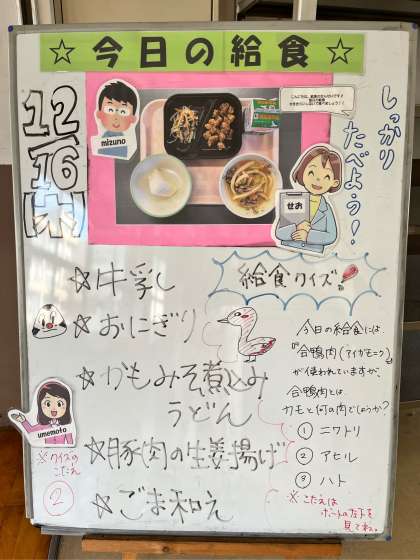 ☆今日の給食☆
12/16(木)
しっかり
たべよう!
mizuno
せお
☆牛乳
☆おにぎり
☆かもみそ煮込み
うどん
☆豚肉の生姜揚げ
☆ごま和え
umemoto
※クイズの
こたえ
②
給食クイズ
今日の給食には
『合鴨肉(アイガモニク)』
が使われていますが、
合鴨肉とは
カモと何の肉でしょうか?
① ニワトリ
② アヒル
③ ハト
※こたえは
ボードの左下を
見てね。